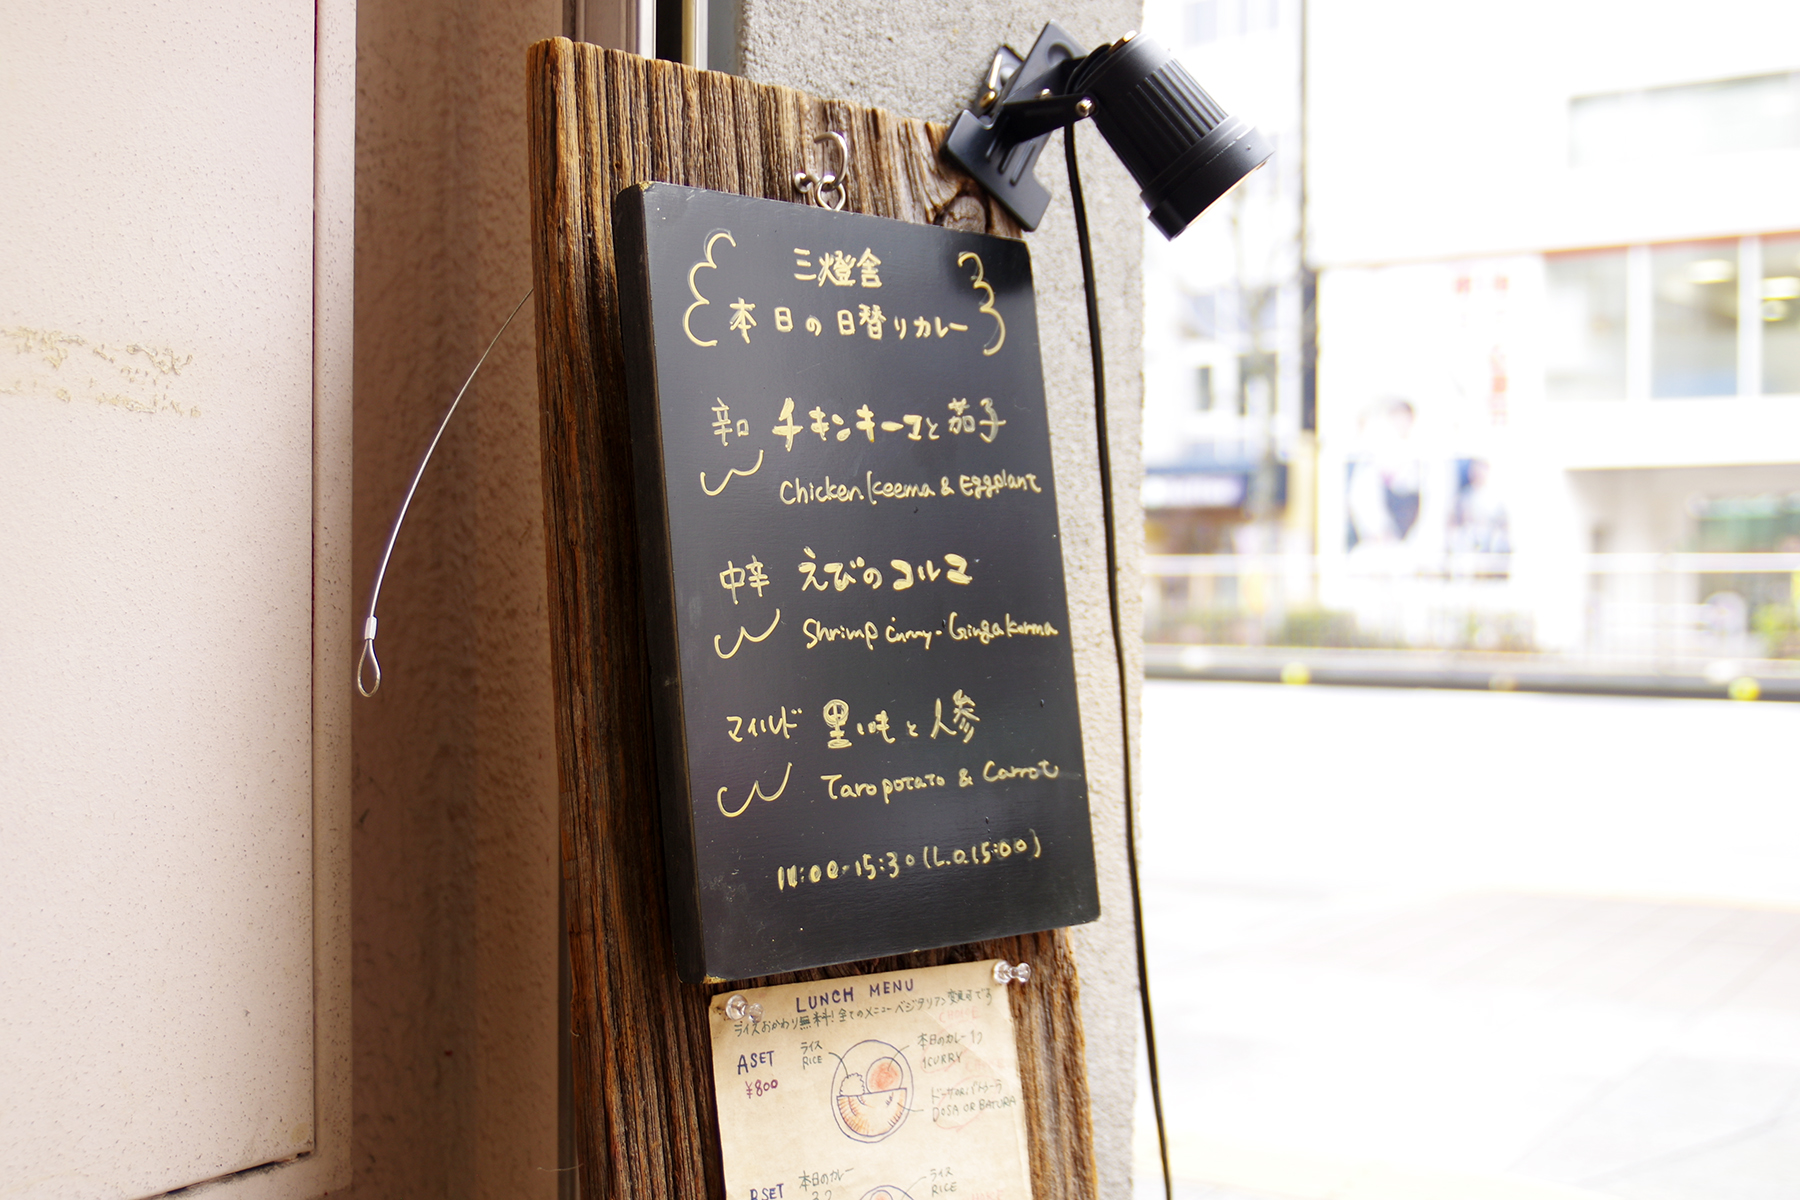 三燈舎
本日の日替りカレー
辛口 チキンキーマと茄子
Chicken Keema & Eggplant
中辛 えびのコルマ
Shrimp curry - Ginga Korma
マイルド 里いもと人参
Taro potato & Carrot
11:00-15:30 (L.O.15:00)
LUNCH MENU
ライスおかわり無料! 全てのメニューベジタリアン変更可です
A SET
¥800
ライス
RICE
本日のカレー 1つ
1 CURRY
DOSA OR BATURA
B SET
本日のカレー
ライス
RICE